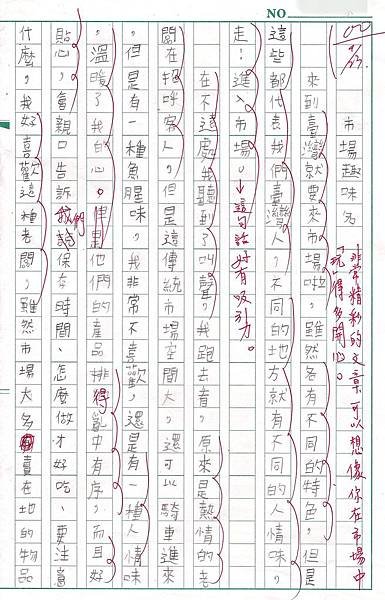 NO
市場趣味多
來到臺灣就要來市場啦，雖然各有不同的特色，但是
這些都代表我們臺灣人，不同的地方就有不同的人情味，
走！進入市場。這句話好有吸引力。
在不遠處我聽到了叫聲，我跑去看，原來是熱情的老
闆在招呼客人，但是這傳統市場空間大，還可以騎車進來
，但是有一種魚腥味，我非常不喜歡，還是有一種人情味
，溫暖了我的心。他們的產品排得亂中有序，而且好
貼心，會親口告訴我們說保存時間、怎麼做才好吃、要注意
什麼，我好喜歡這種老闆，雖然市場大多賣在地的物品
非常精彩的文章，可以想像你在市場中
玩得多開心。